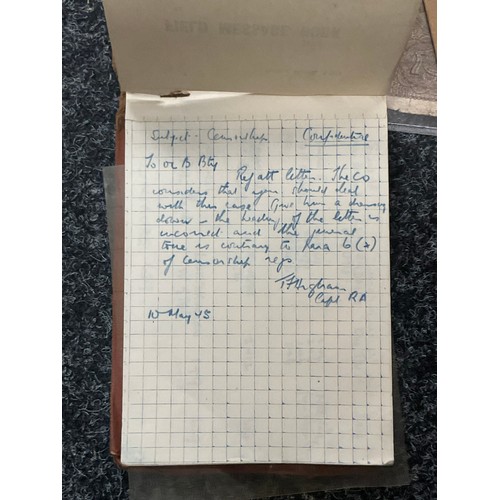 FIELD MESSAGE BOOK
Subject - Censorship Confidential
To OC B Bty
Ref att letter. The CO
considers that you should deal
with this case. Give him a dressing
down - the heading of the letter is
incorrect and the general
tone is contrary to para 6
of censorship regs
Capt RA
10 May 45